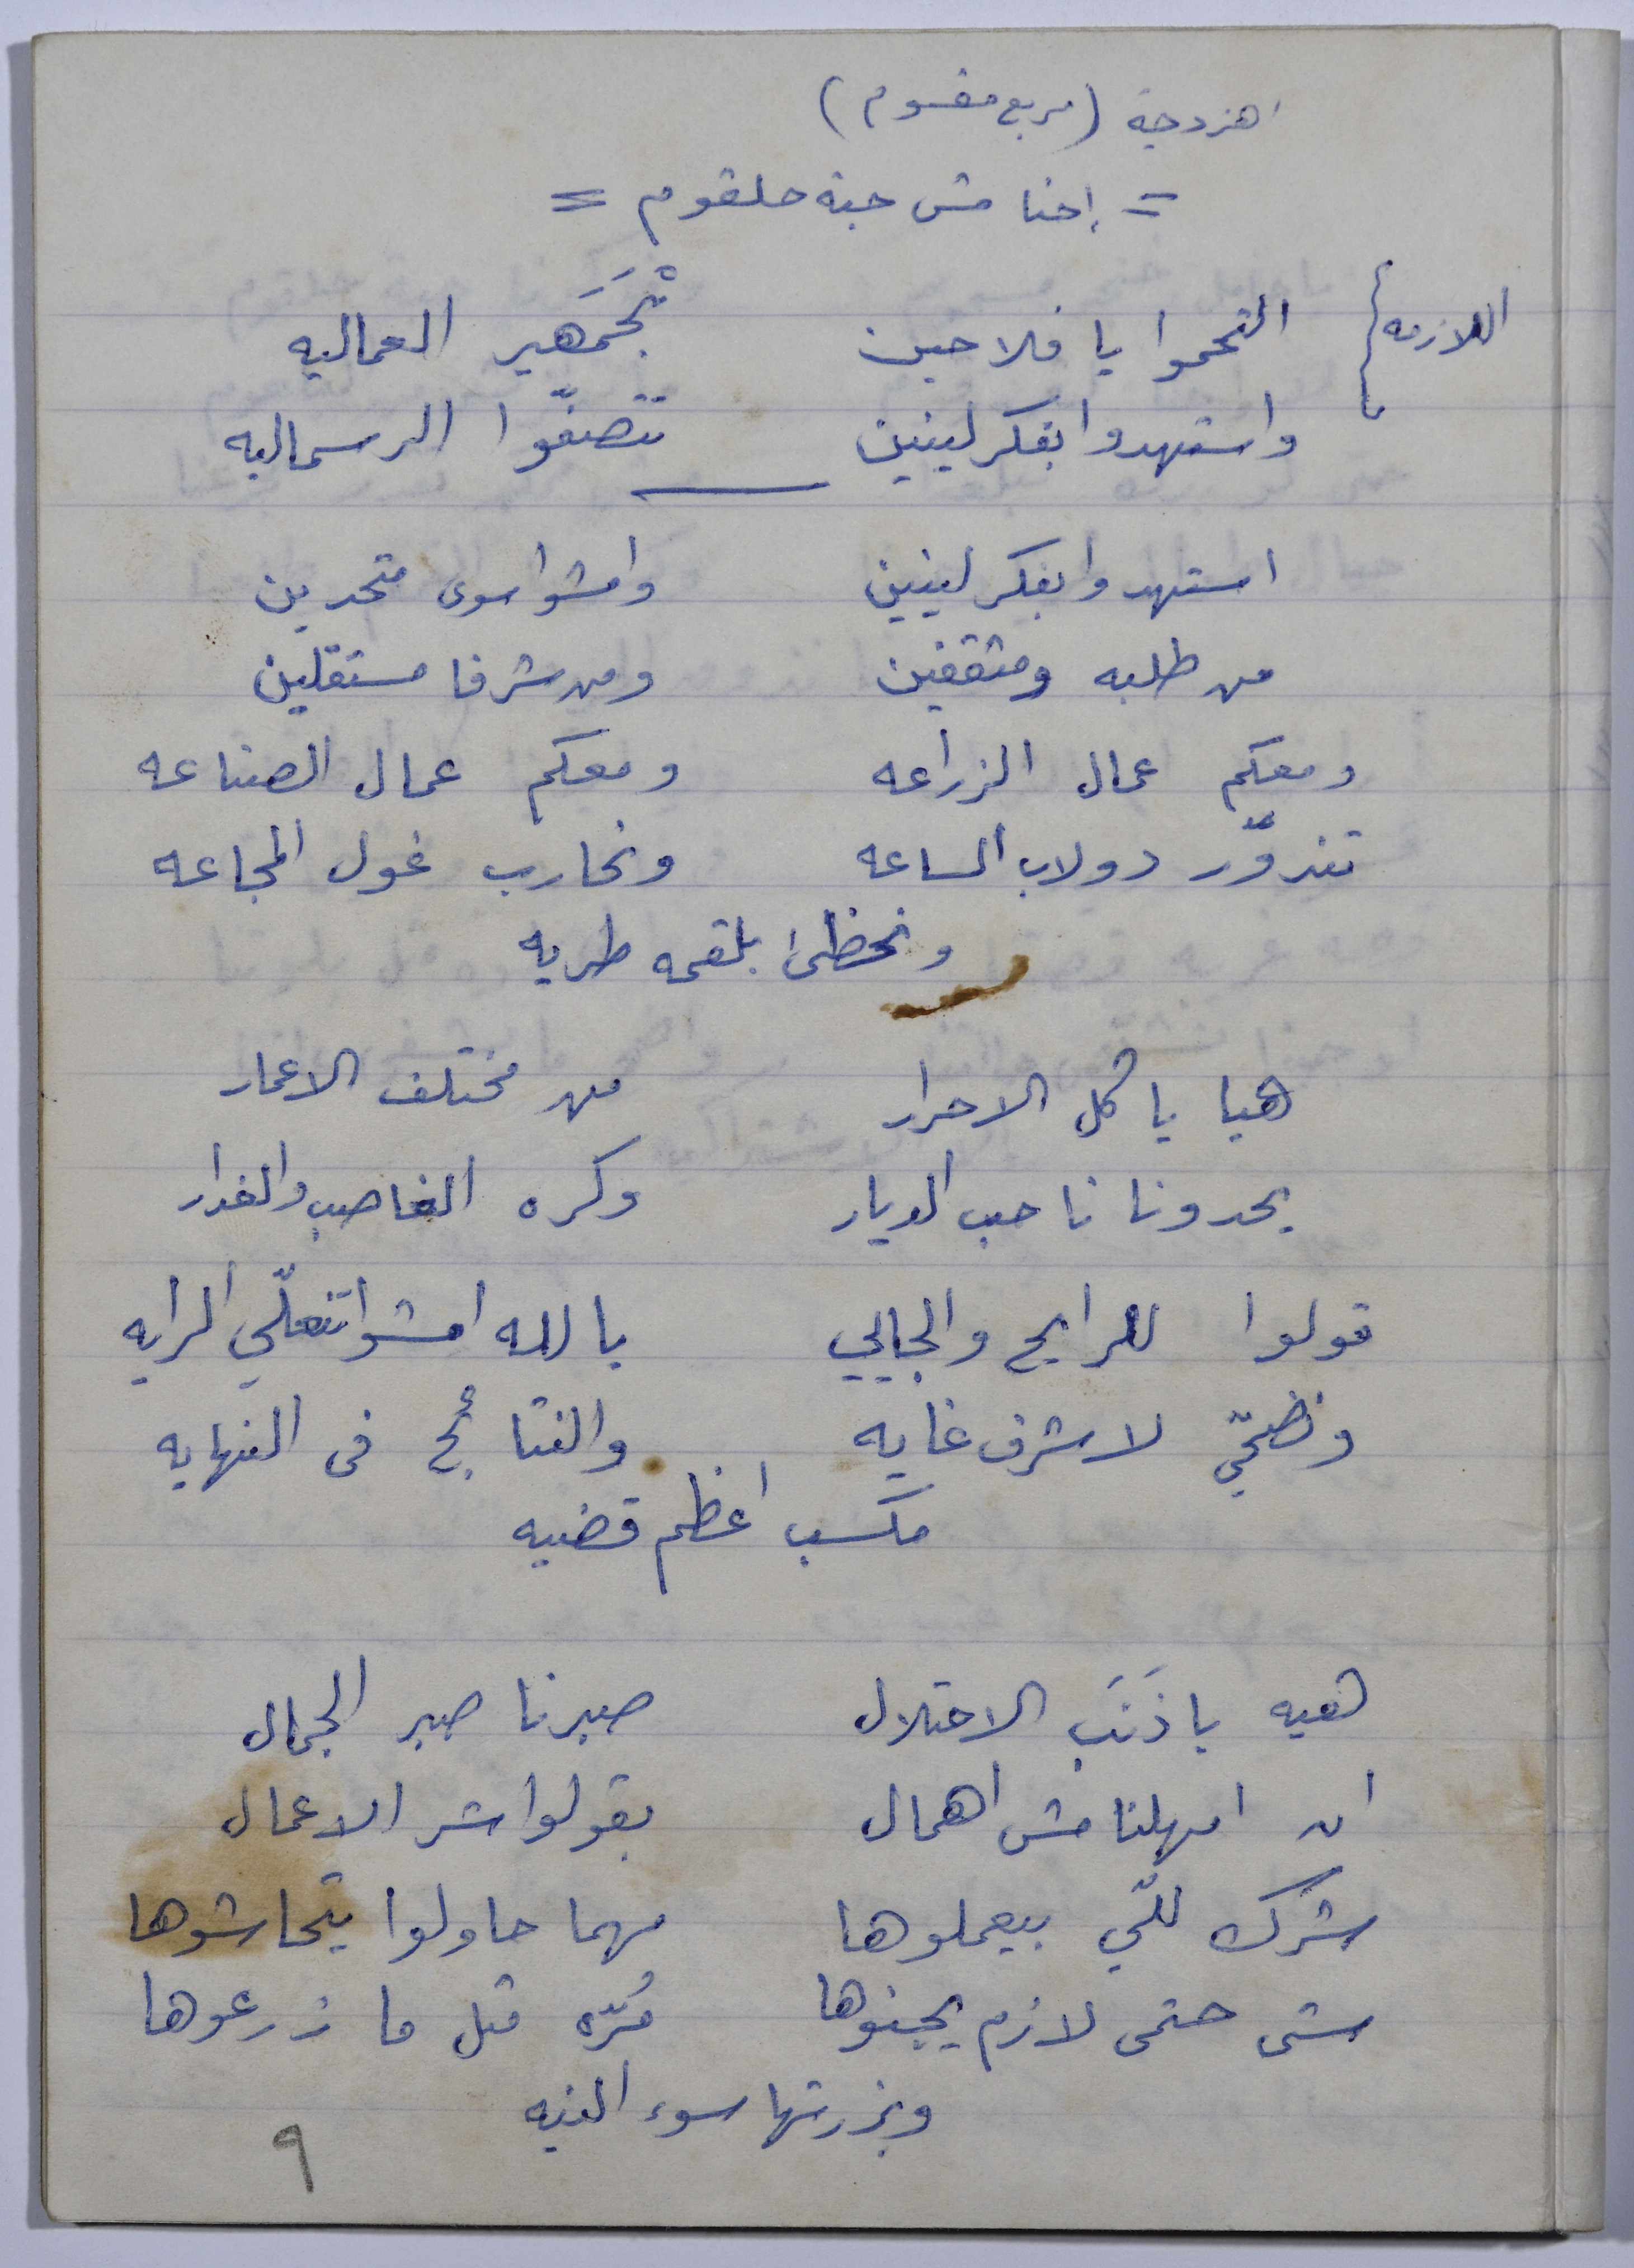 اهزوجة (مربع مقسوم)
= إحنا مش حبة حلقوم =
اللازمه } التحموا يا فلاحين بْجَمَهير العماليه
واستهدوا بفكر لينين تتصفّوا الرسماليه
استهدوا بفكر لينين وامشوا سوى متحدين
من طلبه ومثقفين ومن شرفا مستقلين
ومعكم عمال الزراعه ومعكم عمال الصناعه
تندوّر دولاب الساعه ونحارب غول المجاعه
ونحظى بلقمه طريه
هيا يا كل الاحرار من مختلف الاعمار
يحدونا نا حب الديار وكره الغاصب والغدار
قولوا للرايح والجايي يا لله امشوا تنعلّي الرايه
ونضحّي لاشرف غايه والنتائج في النهايه
مكسب اعظم قضيه
هيه يا ذَنَب الاحتلال صبرنا صبر الجمال
ان امهلنا مش اهمال بقولوا شر الاعمال
شرك للّي بيعملوها مهما حاولوا يتحاشوها
شي حتمى لازم يجنوها مُرّه مثل ما زرعوها
وبزرتها سوء النيه
٩